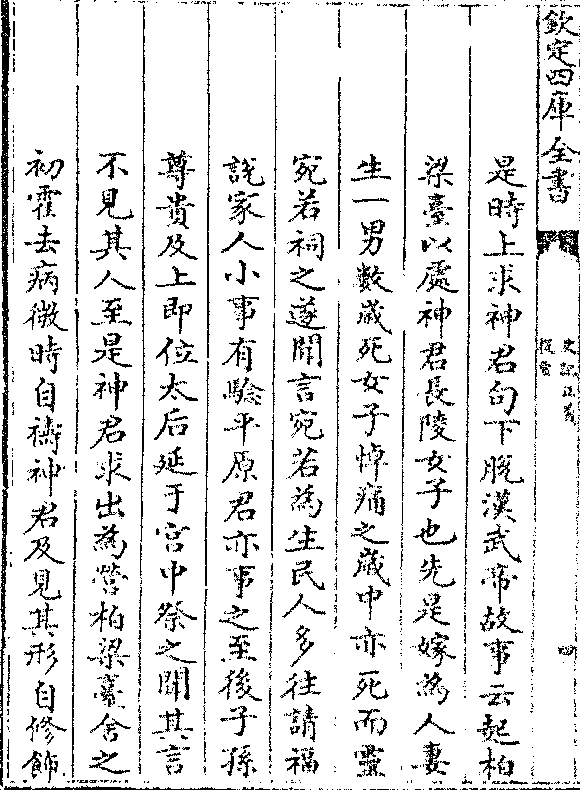 欽定四庫全書
史記正義
是時上求神君句下脫漢武帝故事云起柏
梁臺以處神君長陵女子也先是嫁為人妻
生一男數歲死女子悼痛之歲中亦死而靈
宛若祠之遂聞言宛若為生民人多往請福
說家人小事有驗平原君亦事之至後子孫
尊貴及上即位太后延于宮中祭之聞其言
不見其人至是神君求出為營柏梁臺舍之
初霍去病微時自禱神君及見其形自修飾